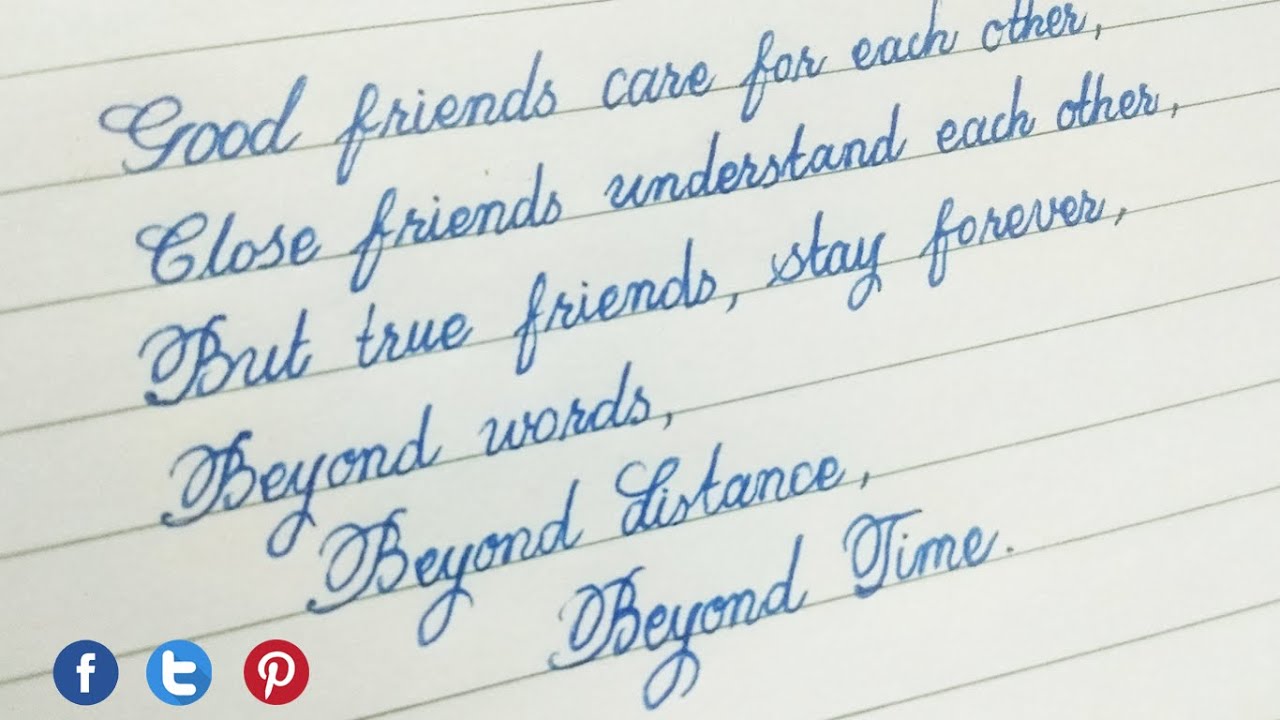 Good friends care for each other,
Close friends understand each other,
But true friends, stay forever,
Beyond words,
Beyond distance,
Beyond Time.